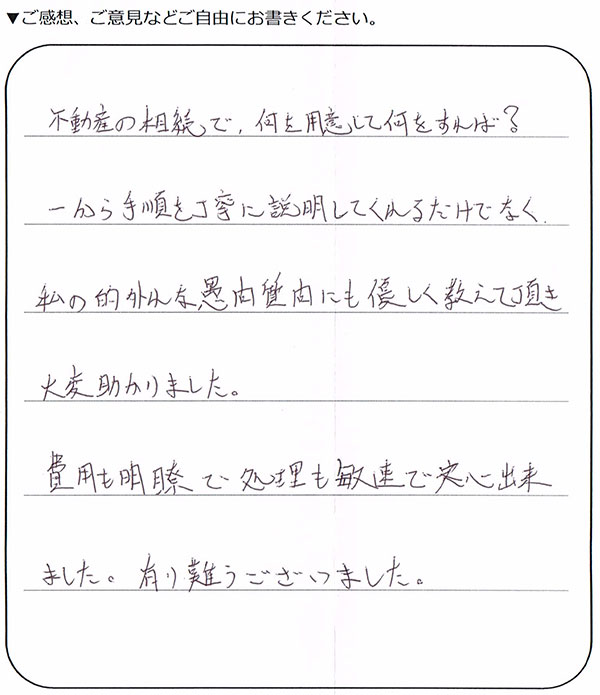 ▼ご感想、ご意見などご自由にお書きください。
不動産の相続で、何を用意して何をすれば?
一から手順を丁寧に説明してくれるだけでなく、
私の的外れな愚問質問にも優しく教えて頂き
大変助かりました。
費用も明瞭で処理も敏速で安心出来
ました。有り難うございました。